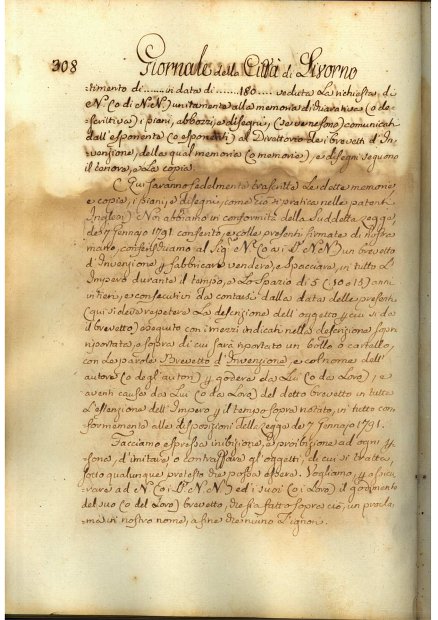 308 Giornale della Città di Livorno
timento di ...... in data di ...... 180 .... veduta La richiesta di
N. (o di N. N.) unitamente alla memoria dichiarativa (o de=
scrittiva) i piani, abbozzi, e disegni, (se ve ne sono) comunicati
dall'esponente (o esponenti) al Direttorio dei brevetti d'In=
venzione, della qual memoria (o memorie), e disegni seguono
il tenore, e La copia.
(Qui saranno fedelmente trascritte Le dette memorie,
e copia, i piani, e disegni, come ciò si pratica nelle patenti
Inglesi) Noi abbiamo in conformità della Suddetta Legge,
de 7 Gennajo 1791 conferito, e colle presenti firmate di nostra
mano, conferischiamo al Sig.r N. (o ai S.ri N. N.) un brevetto
d'Invenzione p fabbricare, vendere, e spacciare, in tutto L'
Impero durante il tempo, e Lo Spazio di 5 (10 o 15) anni
intieri, e consecutivi da contarsi dalla data delle presenti
(qui si deve repetere La descrizione dell'oggetto p cui si dà
il brevetto) eseguito con i mezzi indicati nella descrizione sopra
riportata, e sopra di cui sarà riportato un bollo o cartello,
con La parole Brevetto d'Invenzione, e col nome dell'
autore (o degli autori) p godere da Lui (o da Loro), e
aventi causa da Lui (o da Loro) del detto brevetto in tutta
L'estenzione dell'Impero p il tempo sopra notato, in tutto con
formemente alle disposizioni della Legge de 7 Gennajo 1791.
Facciamo espressa inibizione, e proibizione ad ogni p
sona, d'imitare o contraffare gl'oggetti, di cui si tratta,
sotto qualunque pretesto che possa essere. Vogliamo, p assicu
rare ad N. (o ai S.ri N. N.) ed i suoi (o i Loro) il godimento
del suo (o del Loro) brevetto, che sia fatto sopra ciò, un procla
ma in nostro nome, a fine che niuno L'ignori.